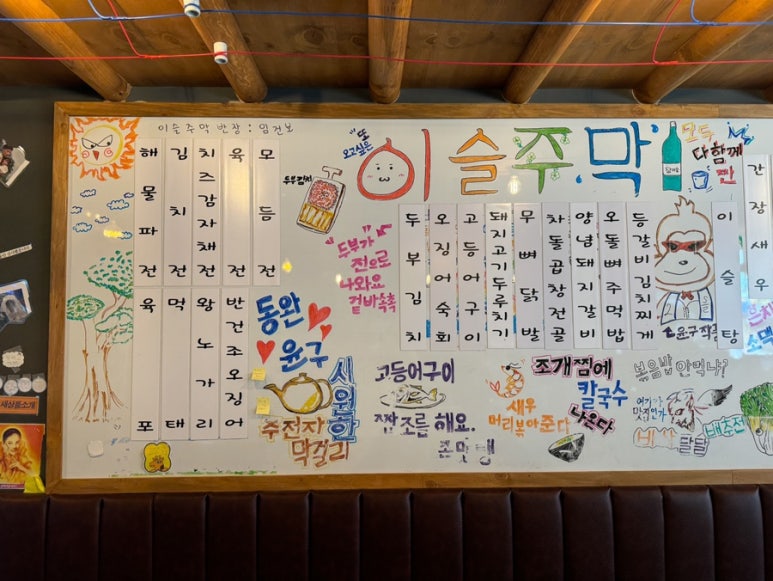 이슬주막 반장 : 임건보
"또
오고싶은
이슬주.막
모두
다함께
짠
해물파전
김치전
치즈감자채전
육전
모듬전
육포
먹태
왕노가리
반건조오징어
두부김치
"두부가
전으로
나와요
겉바속촉
두부김치
오징어숙회
고등어구이
돼지고기두루치기
무뼈닭발
차돌곱창전골
양념돼지갈비
오돌뼈주먹밥
등갈비김치찌게
이슬탕
간장새우
동완
윤구
시원한
주전자
막걸리
고등어구이
짭조름해요.
존맛탱
새우
머리볶아준다
조개찜에
칼국수
나온다
볶음밥안먹냐?
여기가
맛집인가
배추전
새상품소개